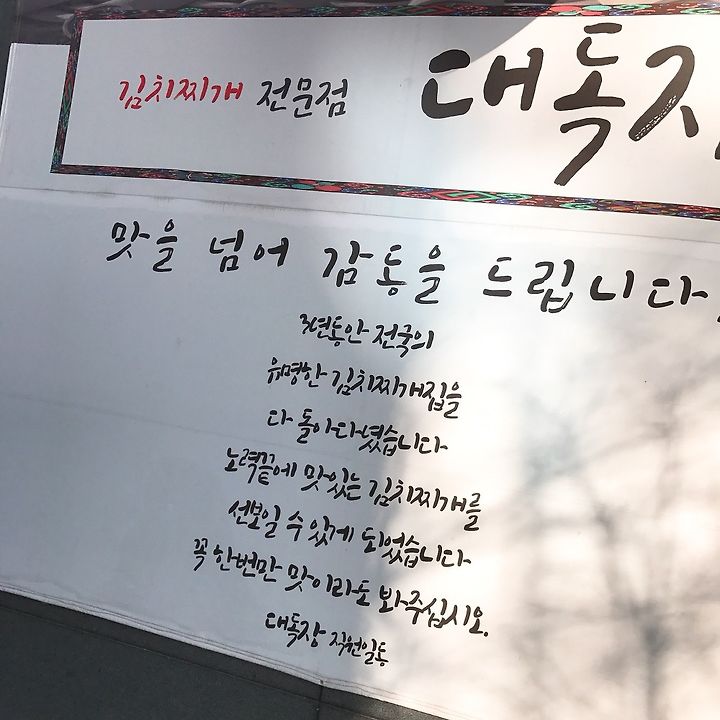 김치찌개 전문점 대독장
맛을 넘어 감동을 드립니다.
3년동안 전국의
유명한 김치찌개집을
다 돌아다녔습니다
노력끝에 맛있는 김치찌개를
선보일 수 있게 되었습니다
꼭 한번만 맛이라도 봐주십시오.
대독장 직원일동